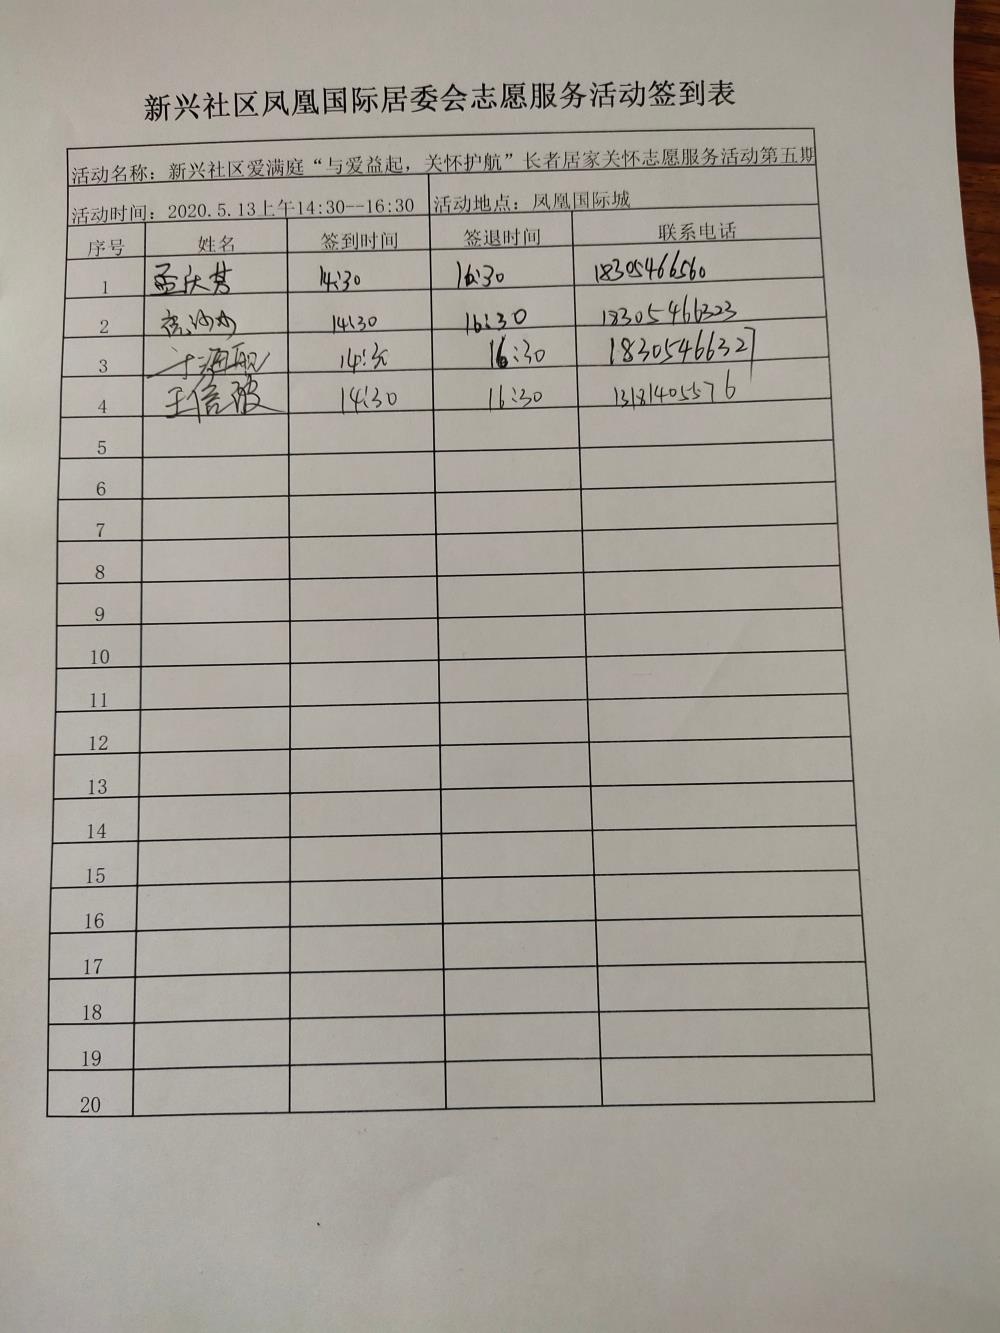 新兴社区凤凰国际居委会志愿服务活动签到表
活动名称：新兴社区爱满庭“与爱益起，关怀护航”长者居家关怀志愿服务活动第五期
活动时间：2020.5.13上午14:30--16:30 活动地点：凤凰国际城
序号 姓名 签到时间 签退时间 联系电话
1 孟庆芬 14:30 16:30 18305466560
2 14:30 16:30 18305466323
3 于海舰 14:30 16:30 18305466327
4 王信波 14:30 16:30 13181405576
5
6
7
8
9
10
11
12
13
14
15
16
17
18
19
20